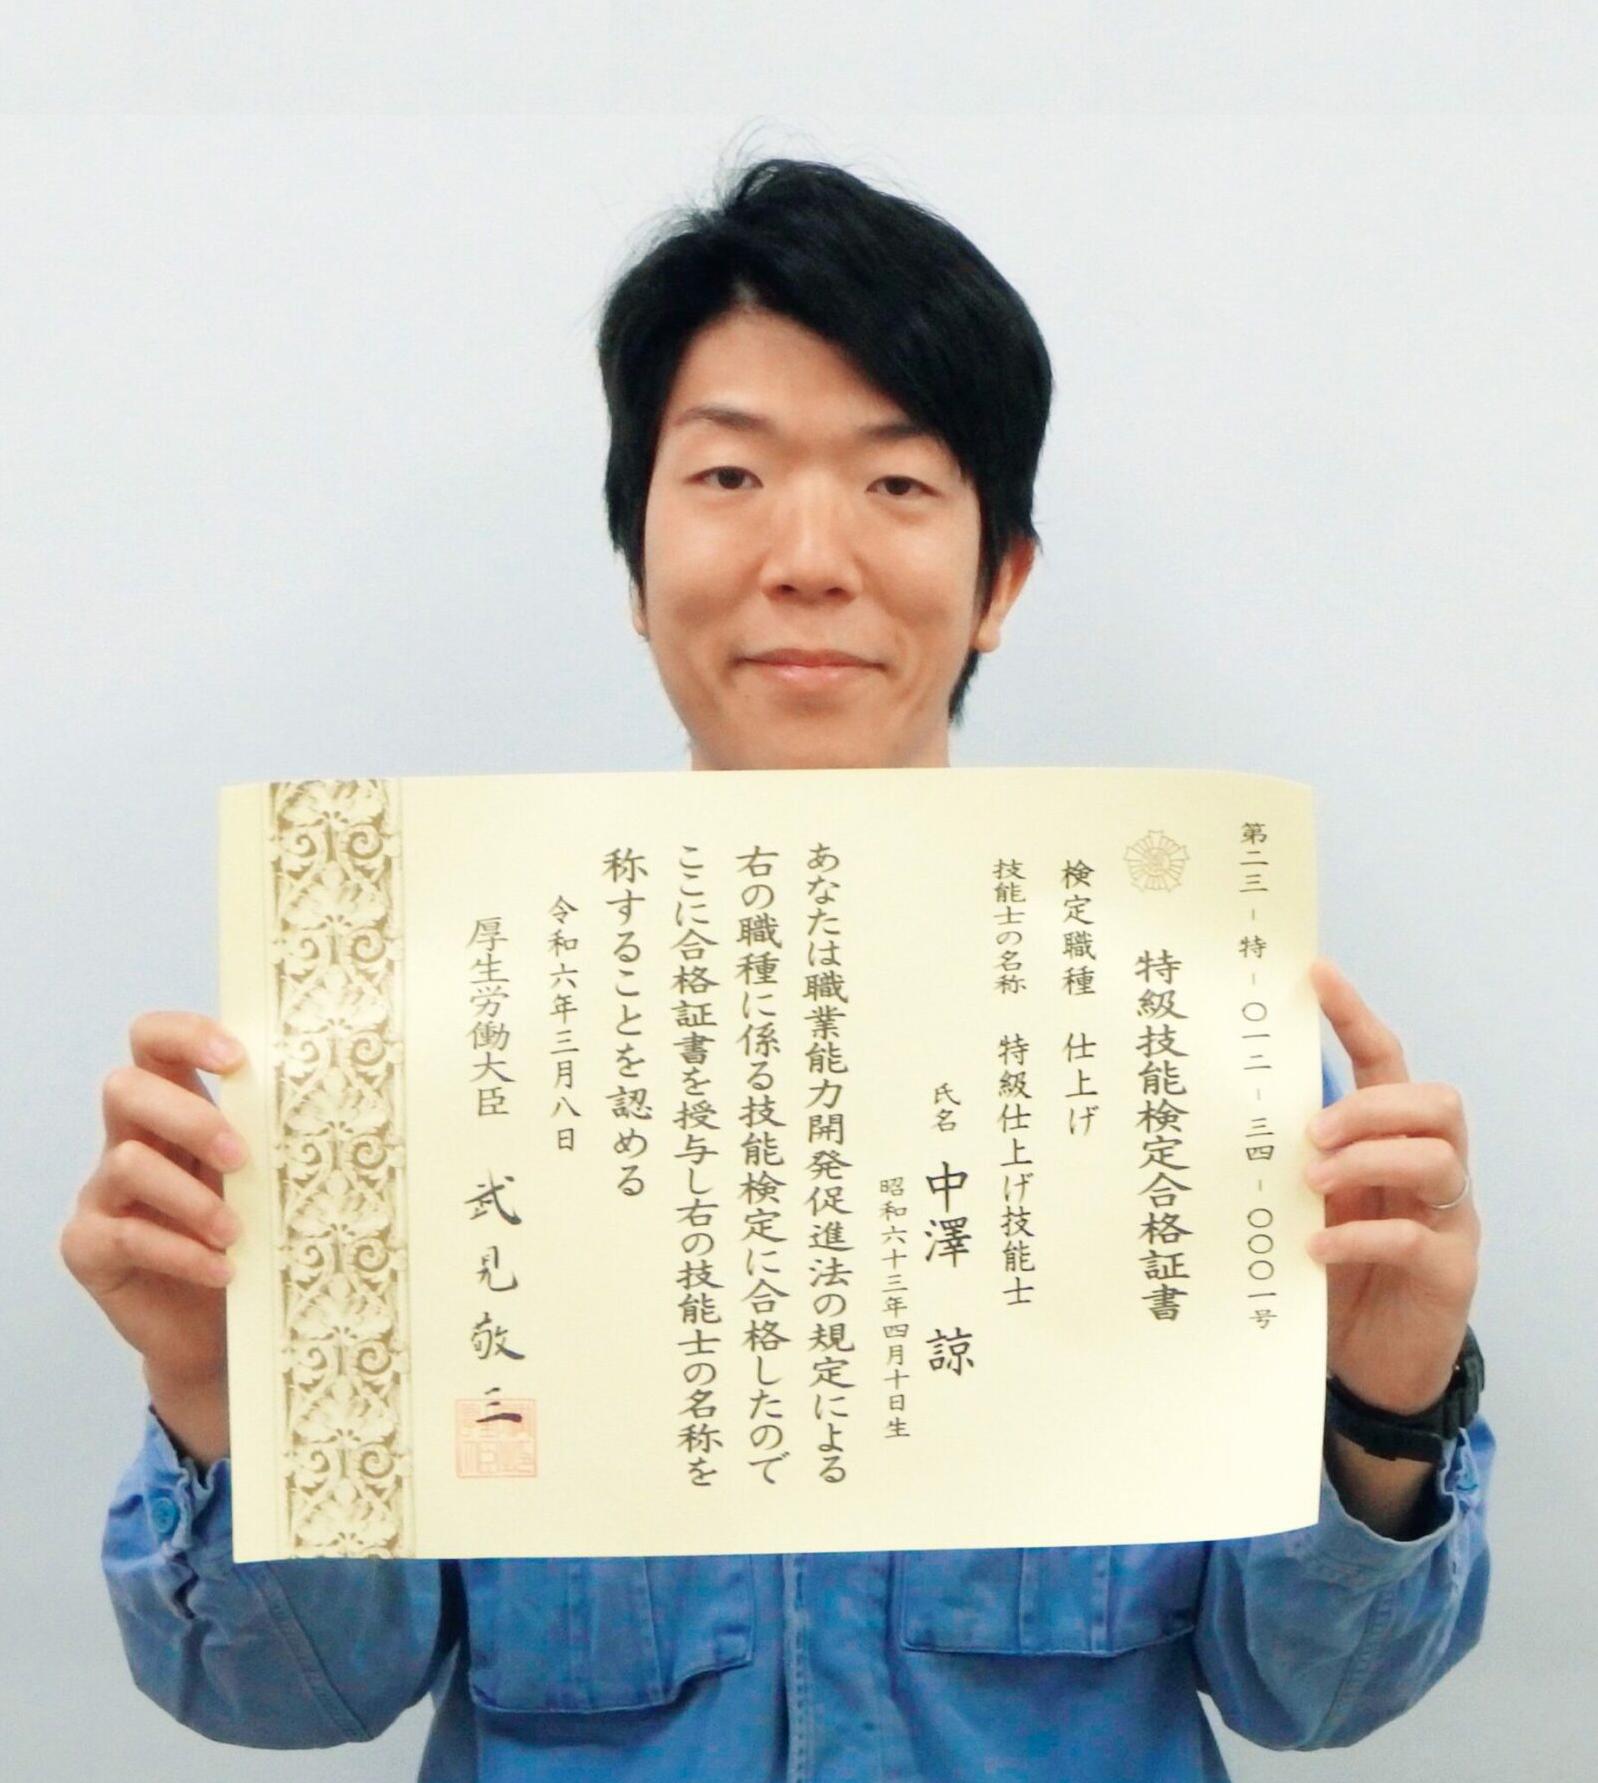 第二三-特-〇一二-三四-〇〇〇一号
特級技能検定合格証書
検定職種 仕上げ
技能士の名称 特級仕上げ技能士
氏名 中澤 諒
昭和六十三年四月十日生
あなたは職業能力開発促進法の規定による
右の職種に係る技能検定に合格したので
ここに合格証書を授与し右の技能士の名称を
称することを認める
令和六年三月八日
厚生労働大臣 武見敬三